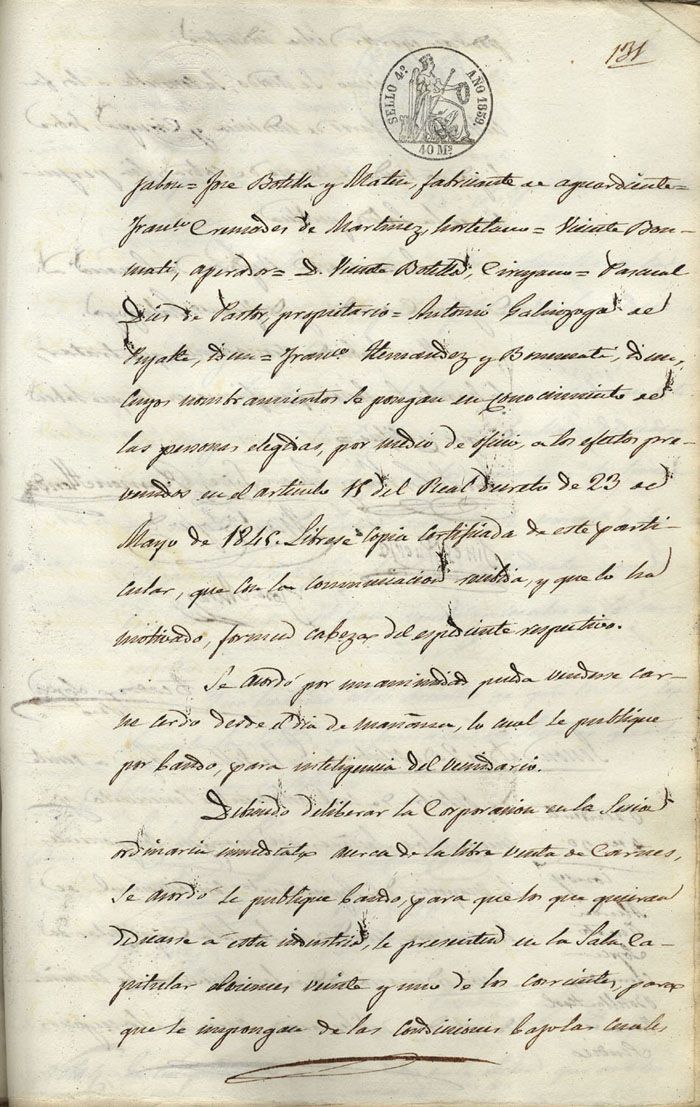 131
SELLO 4º AÑO 1859.
40 Ms
Jabon = Jose Botella y Mateu, fabricante de aguardiente =
Franco Cremades de Martinez, hortelano = Vicente Bon-
mati, aperador = D. Vicente Botella, Cirujano = Pascual
Dies de Pastor, propietario = Antonio Galinzoga de
= Franco Hernandez y Bonmati,
cuyos nombramientos se pongan en conocimiento de
las personas elegidas, por medio de oficio, a los efectos pre-
venidos en el articulo 15 del Real decreto de 23 de
Mayo de 1845. Librese copia certificada de este parti-
cular, que con la comunicacion recibida, y que lo ha
motivado, formen cabeza del espediente respectivo.
Se acordó por unanimidad pueda venderse car-
ne cerdo desde el dia de mañana, lo cual se publique
por bando, para inteligencia del vecindario.
Debiendo deliberar la Corporacion en la Sesion
ordinaria inmediata acerca de la libre venta de Carnes,
se acordó se publique bando, para que los que quieran
dicarse á esta industria, se presenten en la Sala Ca-
pitular el viernes veinte y uno de los corrientes, para
que se impongan de las condiciones bajo las cuales